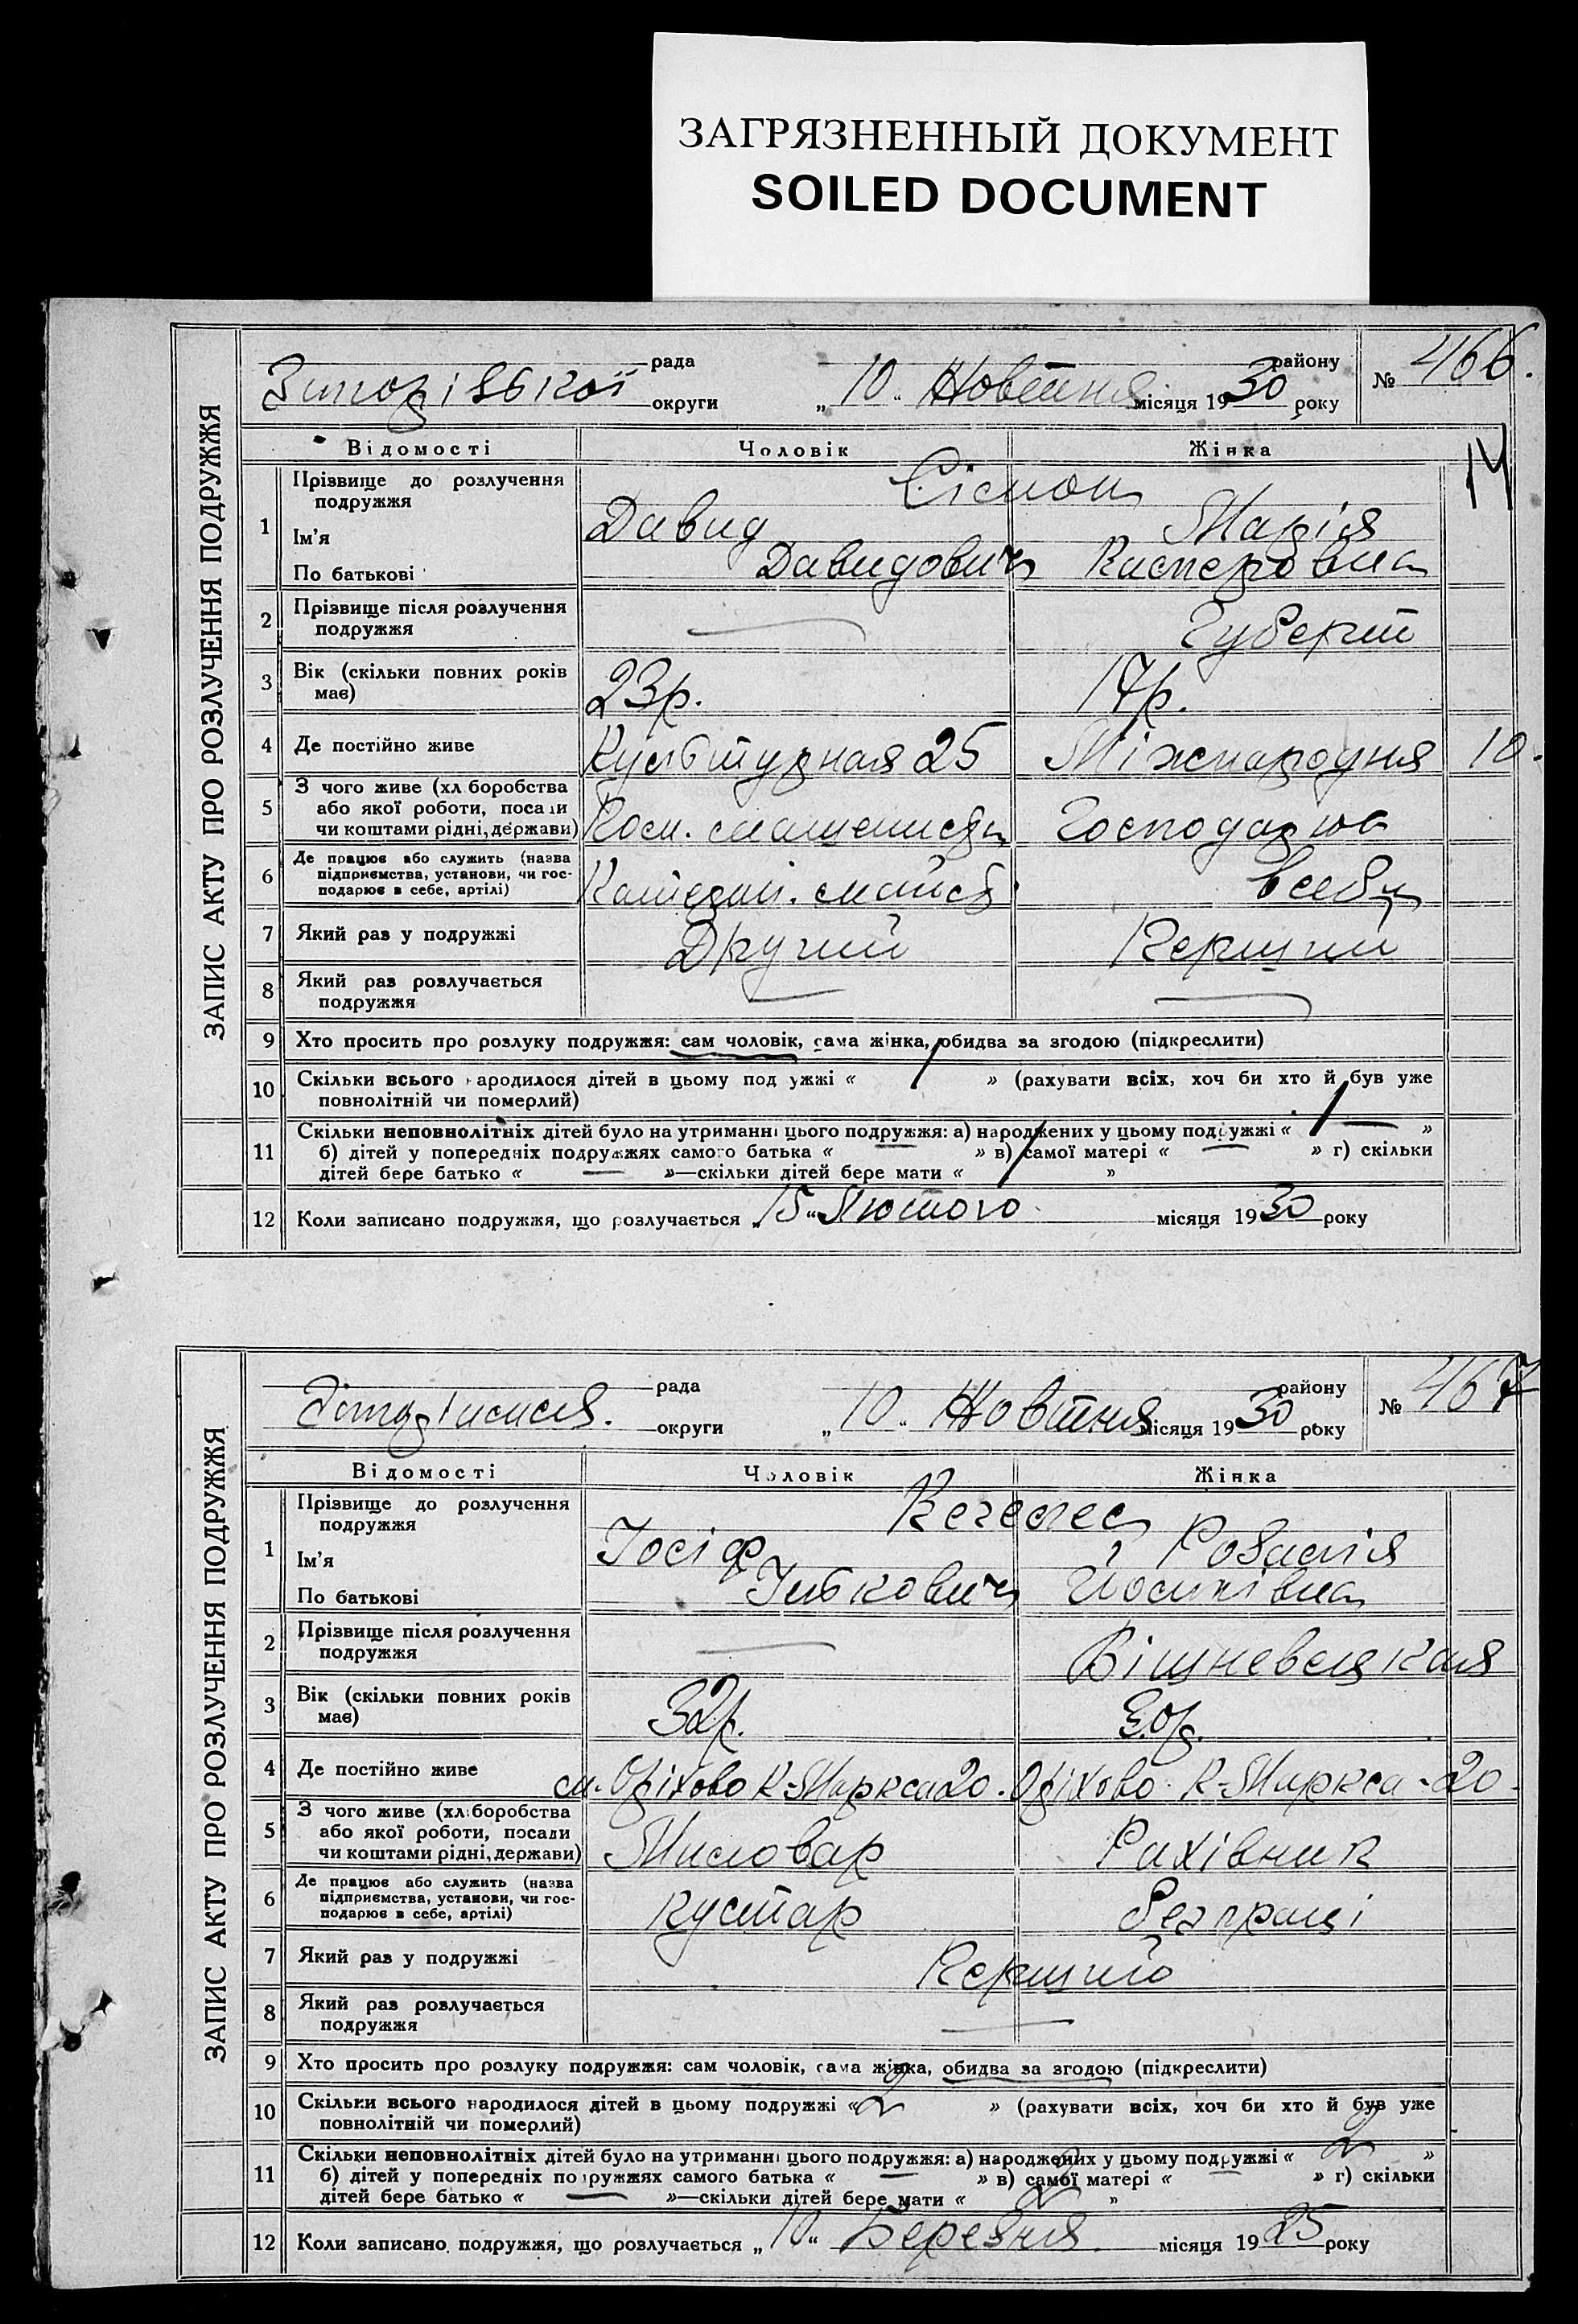 ЗАГРЯЗНЕННЫЙ ДОКУМЕНТ
SOILED DOCUMENT
ЗАПИС АКТУ ПРО РОЗЛУЧЕННЯ ПОДРУЖЖЯ
рада району № 466.
округи „10" Жовтня місяця 1930 року
Відомості Чоловік Жінка
14
1 Прізвище до розлучення подружжя Сімон
Ім'я Давид Марія
По батькові Давидович Касперовна
2 Прізвище після розлучення подружжя — Губерт
3 Вік (скільки повних років має) 23р. 17р.
4 Де постійно живе Культурная 25 Міжнародня 10.
5 З чого живе (хліборобства або якої роботи, посади чи коштами рідні, держави) Господарюв
6 Де працює або служить (назва підприємства, установи, чи господарює в себе, артілі) в себе
7 Який раз у подружжі Другий Перший
8 Який раз розлучається подружжя — —
9 Хто просить про розлуку подружжя: сам чоловік, сама жінка, обидва за згодою (підкреслити)
10 Скільки всього народилося дітей в цьому подружжі « / » (рахувати всіх, хоч би хто й був уже
повнолітній чи померлий)
11 Скільки неповнолітніх дітей було на утриманні цього подружжя: а) народжених у цьому подружжі « / »
б) дітей у попередніх подружжях самого батька « — » в) самої матері « — » г) скільки
дітей бере батько « — »—скільки дітей бере мати « / »
12 Коли записано подружжя, що розлучається „15" Лютого місяця 1930 року
ЗАПИС АКТУ ПРО РОЗЛУЧЕННЯ ПОДРУЖЖЯ
рада району № 467
округи „10" Жовтня місяця 1930 року
Відомості Чоловік Жінка
1 Прізвище до розлучення подружжя
Ім'я Іосіф Розалія
По батькові Іцькович Йосипівна
2 Прізвище після розлучення подружжя — Вішневецкая
3 Вік (скільки повних років має) 32р. 30р.
4 Де постійно живе см. Оріхово К-Маркса 20. Оріхово К-Маркса-20.
5 З чого живе (хліборобства або якої роботи, посади чи коштами рідні, держави) Миловар Рахівник
6 Де працює або служить (назва підприємства, установи, чи господарює в себе, артілі) кустар безпраці
7 Який раз у подружжі Перший
8 Який раз розлучається подружжя —
9 Хто просить про розлуку подружжя: сам чоловік, сама жінка, обидва за згодою (підкреслити)
10 Скільки всього народилося дітей в цьому подружжі « 2 » (рахувати всіх, хоч би хто й був уже
повнолітній чи померлий)
11 Скільки неповнолітніх дітей було на утриманні цього подружжя: а) народжених у цьому подружжі « 2 »
б) дітей у попередніх подружжях самого батька « — » в) самої матері « — » г) скільки
дітей бере батько « — »—скільки дітей бере мати « 2 »
12 Коли записано подружжя, що розлучається „10" Березня місяця 1925 року